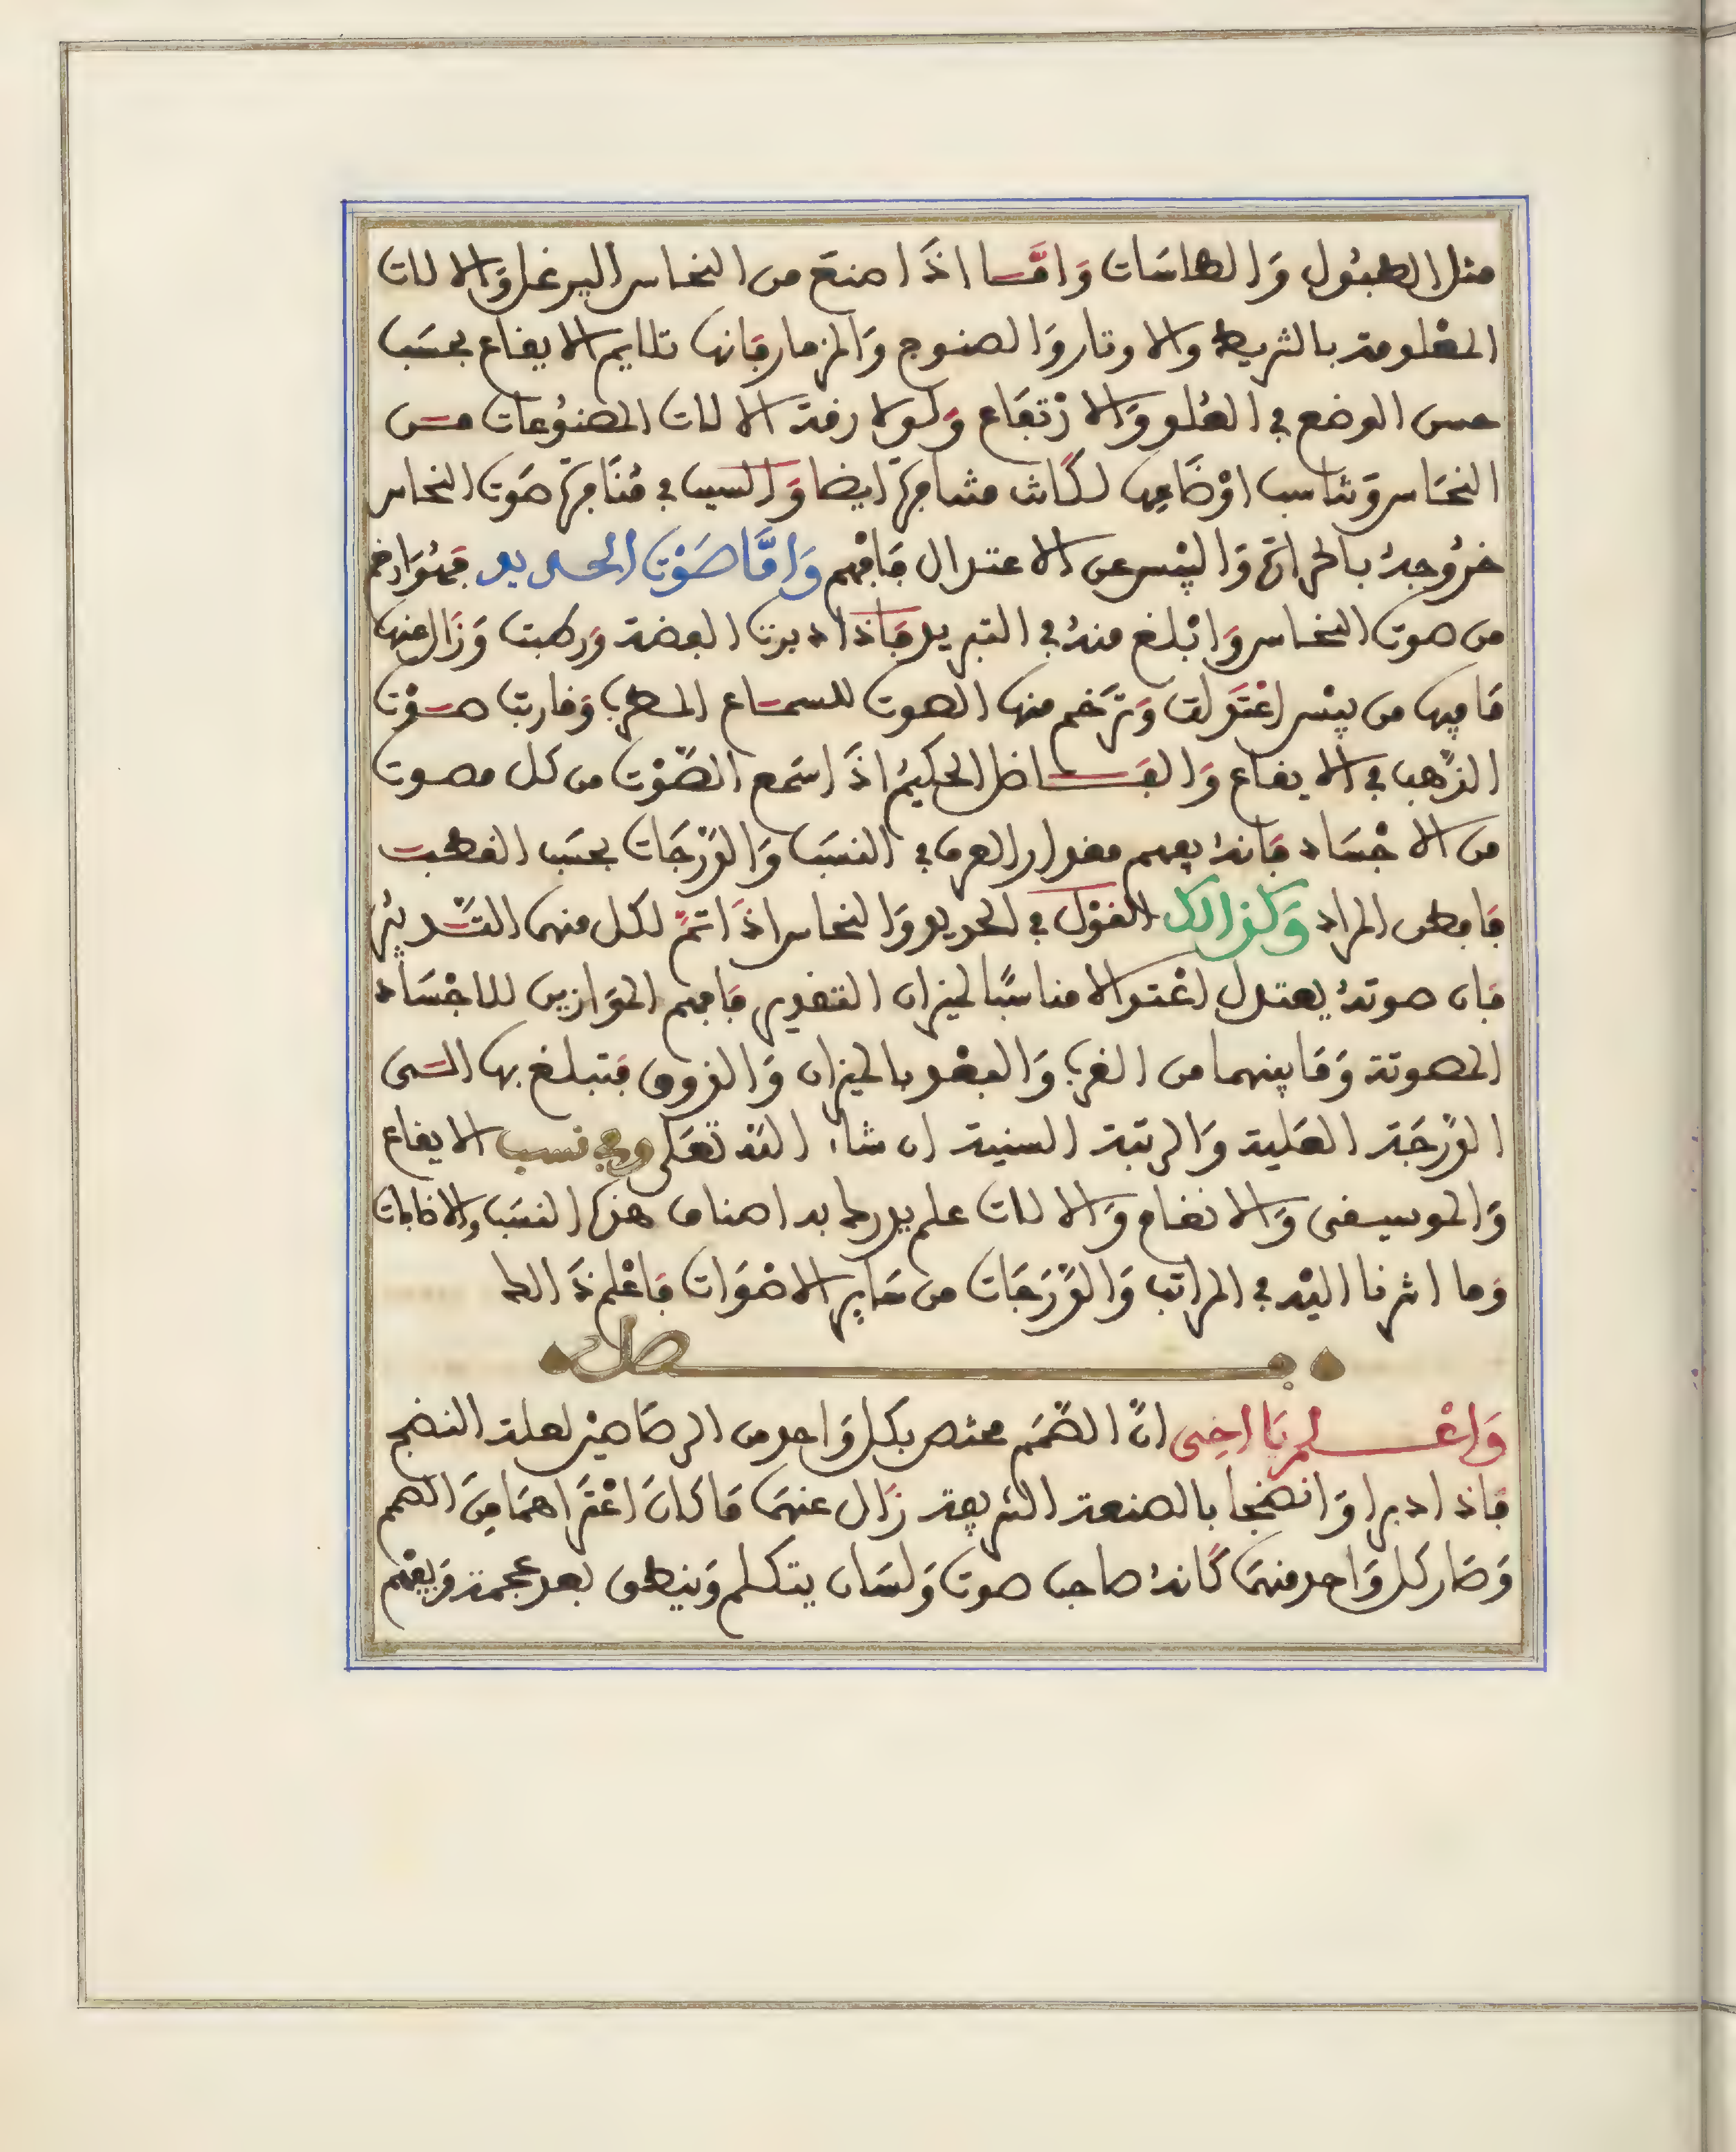 مثل الطبُول وَالطاسَات وَامَّا اذَا صنعَ من النحاس اليرغل وَالالات
المعْلومة بالشريط والاوتار وَالصنوج وَالمزمار فَانها تلايم الايقاع بحسَب
حسن الوضع في العُلو وَالارْتفَاع وَلولا رقة الالات المصنوُعات من
النحَاس وَتناسب اوْضَاعِها لكَانت متنافرة ايضا وَالسبب في مُنَافرة صَوت النحاس
خرُوجهُ بالحرارة وَاليبْس عن الاعتدال فَافْهم وَامَّا صَوْت الحديد فهُوَ ارخم
من صوت النحاس وَابْلغ منهُ في التبريد فَاذا دبرت الفضة وَرطبت وَزَال عنها
مَا فيها من يبْس اعْتَدلت وَترَخم منها الصوت للسماع المطرب وَقاربت صوْت
الذهَب في الايقاع وَالفَاضل الحكيمُ اذَا سَمع الصَّوْت من كل مصوت
من الاجْسَاد فَانهُ يفهم مقدار العرف في النسَب وَالدَّرْجَات بحسَب القطبت
فَافطن المراد وَكذالك القوْل في الحديد وَالنحاس اذَا تمَّ لكل منهما التَّدبيُر
فَان صوتهُ يعتدل اعْتدالا مناسبًا لميزان التقدير فَافهم الموَازين للاجْسَاد
المصوتة وَمَا بينهما من القرب وَالبعْد بالميزان وَالذوق فتبلغ بها الى
الدَّرجَة العَلية وَالرتبة السنية ان شاء اللَه تعَلى وفي نسب الايقاع
وَالموسيقى وَالانغام وَالالات علم يدرك به اصناف هذه النسَب والاضافات
وَما اشرنا اليْه في المراتب وَالدَّرَجَات من سَاير الاصْوَات فَاعْلم ذَالك
فصل
وَاعْلم يَا اخِى انَّ الصَّمَم مختص بكل وَاحد من الرصَاصيْن لعلة النضج
فَاذا دبرا وَانضجا بالصنعة الشريفة زَال عنهمَا مَا كَانَ اعْترَاهمَا مِنَ الصمم
وَصَار كل وَاحد منهمَا كَانهُ صاحب صوت وَلسَان يتكلم وَينطق بعد عجمة وَيفْهم